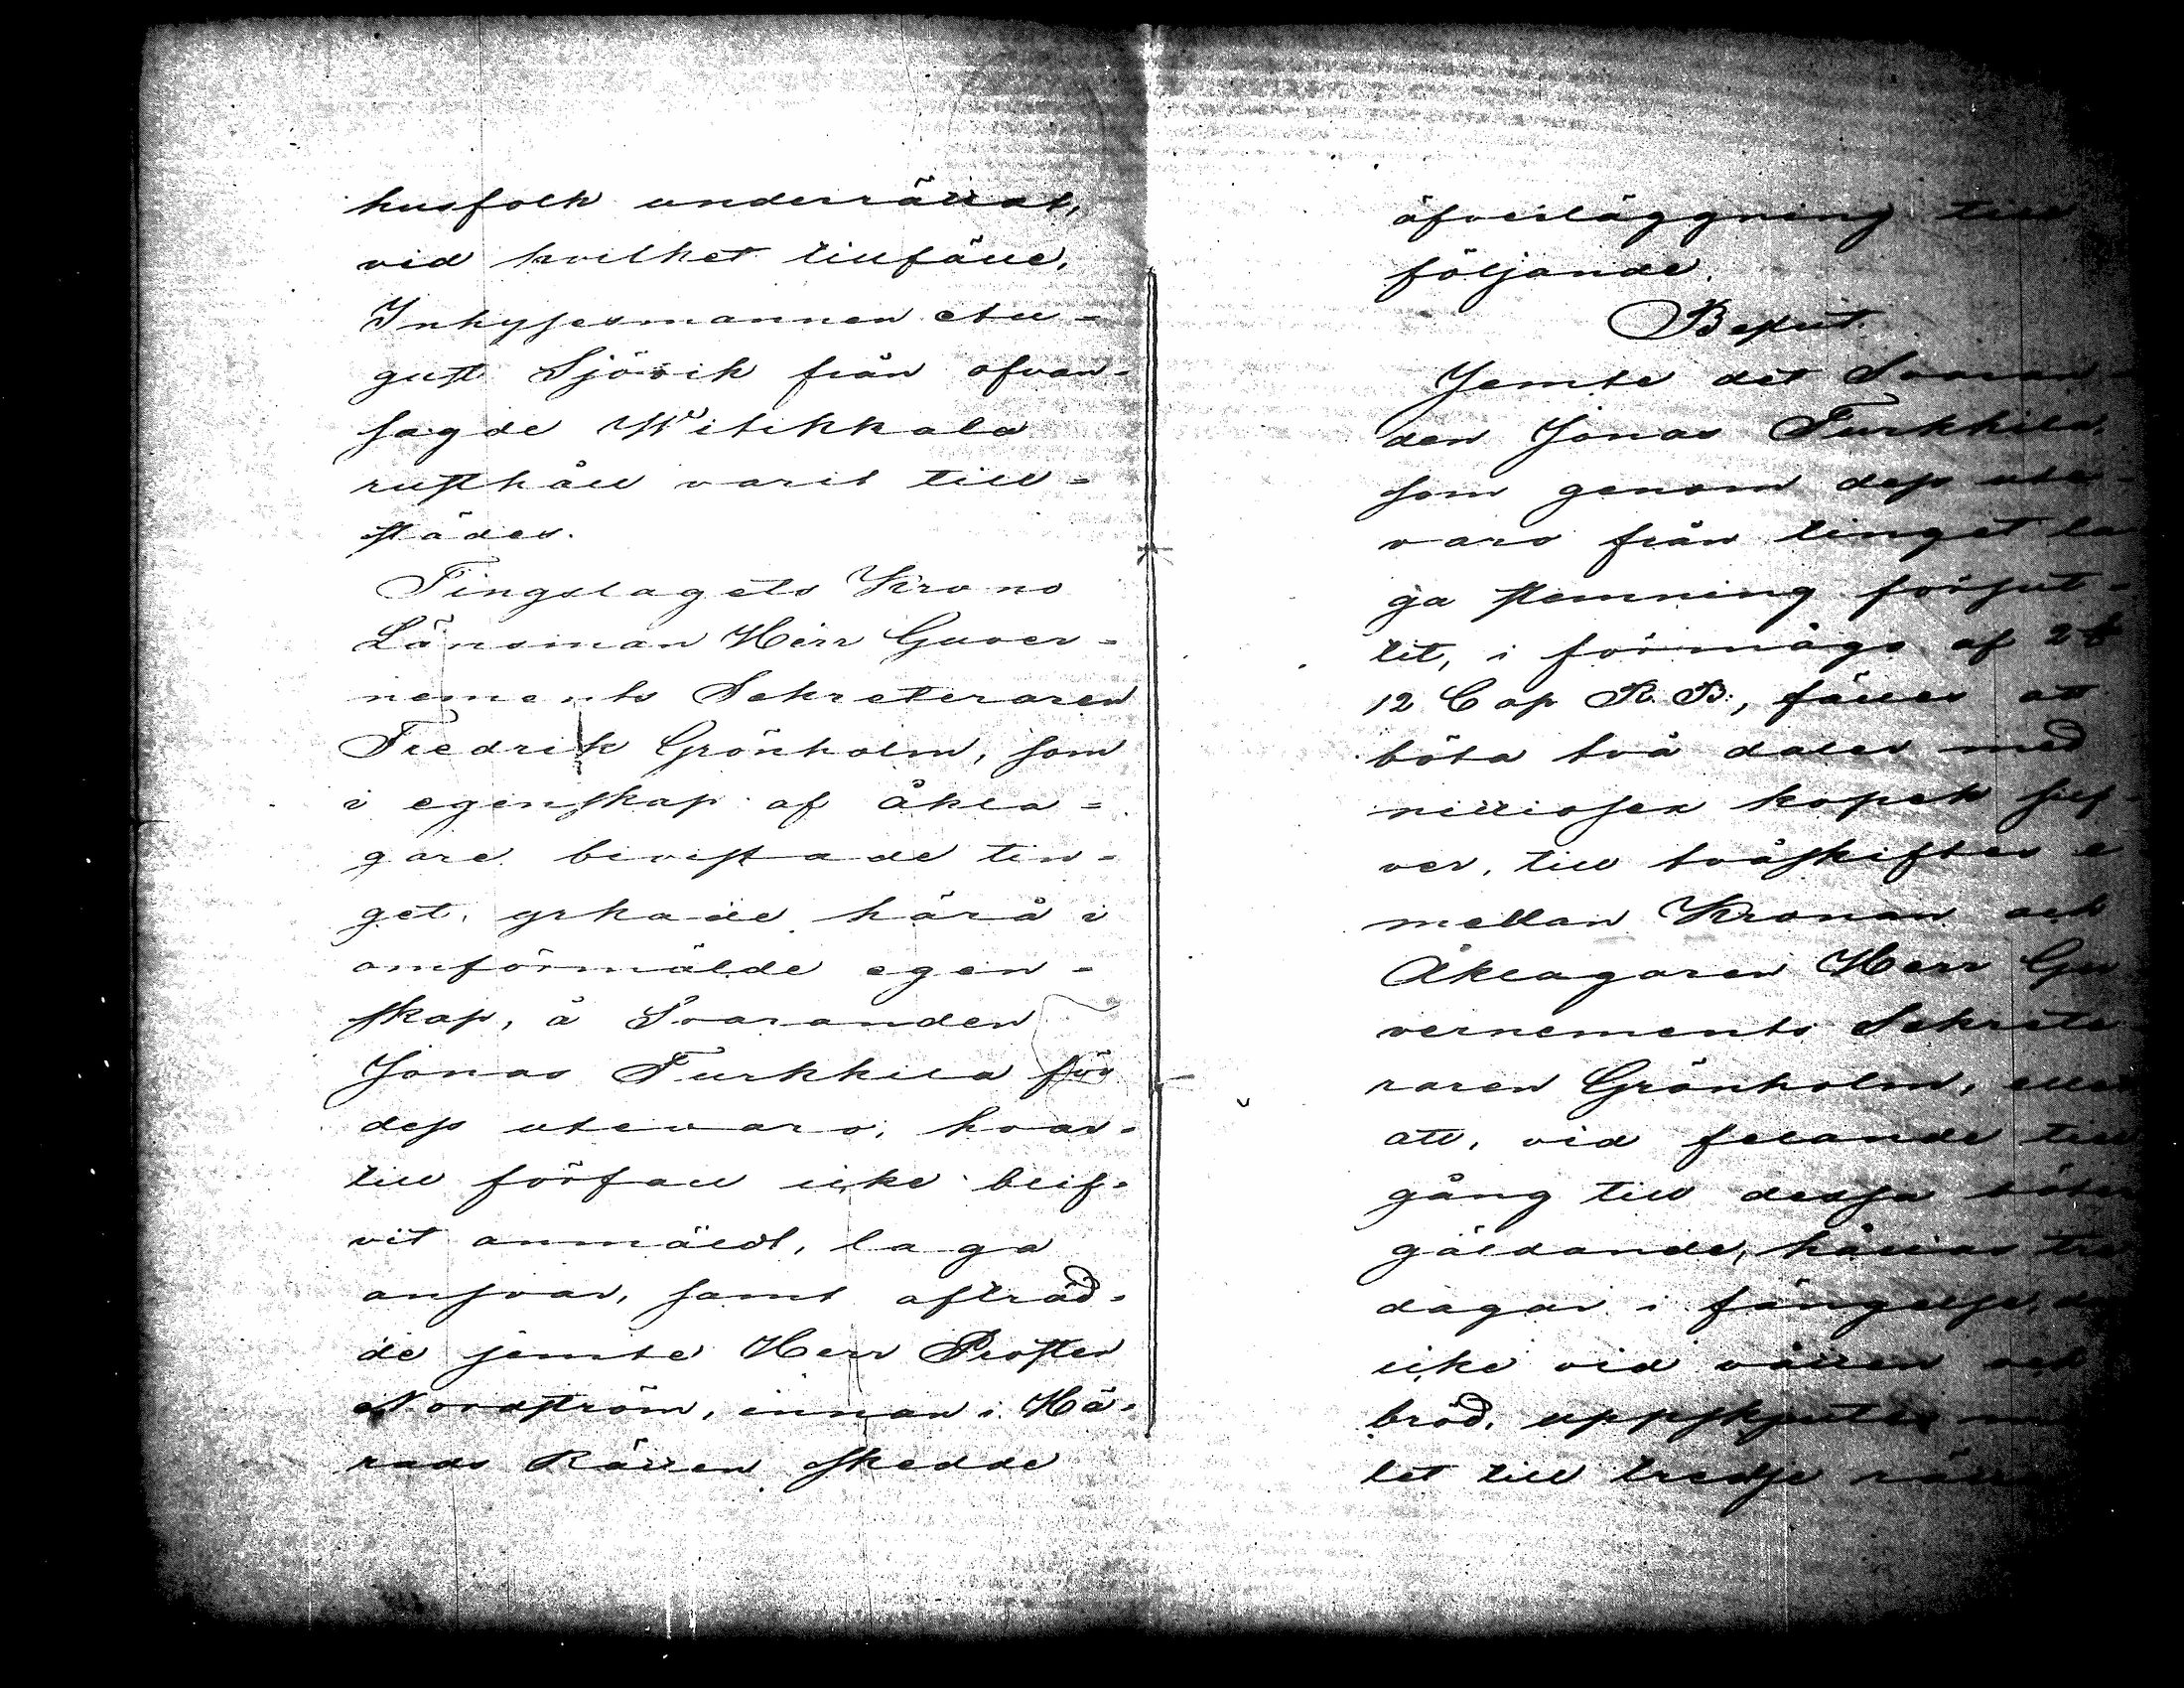 husfolk underrättat,
vid hvilket tillfälle,
Inhysesmannen Au-
gust Sjövik från ofvan-
sagde Witikkala
rusthåll varit till-
städes.
Tingslagets Krono
Länsman Herr Guver-
nements Sekreteraren
Fredrik Grönholm, som
i egenskap af åkla-
gare bevistade tin-
get, yrkade härå i
omförmälde egen-
skap, å Svaranden
Jonas Turkkila för
dess utevaro, hvar-
till förfall icke blif-
vit anmäldt, laga
ansvar, samt afträd-
de jemte Herr Prosten
Nordström, innan i Hä-
rads Rätten skedde
öfverläggning till
följande.
Beslut.
Jemte det Svaran-
den Jonas Turkkila,
som genom dess ute-
varo från tinget la
ga stemning försut-
tit, i förmågo af 2 §
12 Cap R. B., fälles att
böta två daler med
nittiosex kopek silf-
ver, till tvåskiftes e
mellan Kronan och
Åklagaren Herr Gu
vernements Sekrete
raren Grönholm, eller
att, vid felande till
gång till dessa böter
gäldande, hållas tre
dagar i fängelse, do
icke vid vatten och
bröd, uppskjutes må
let till tredje rätte